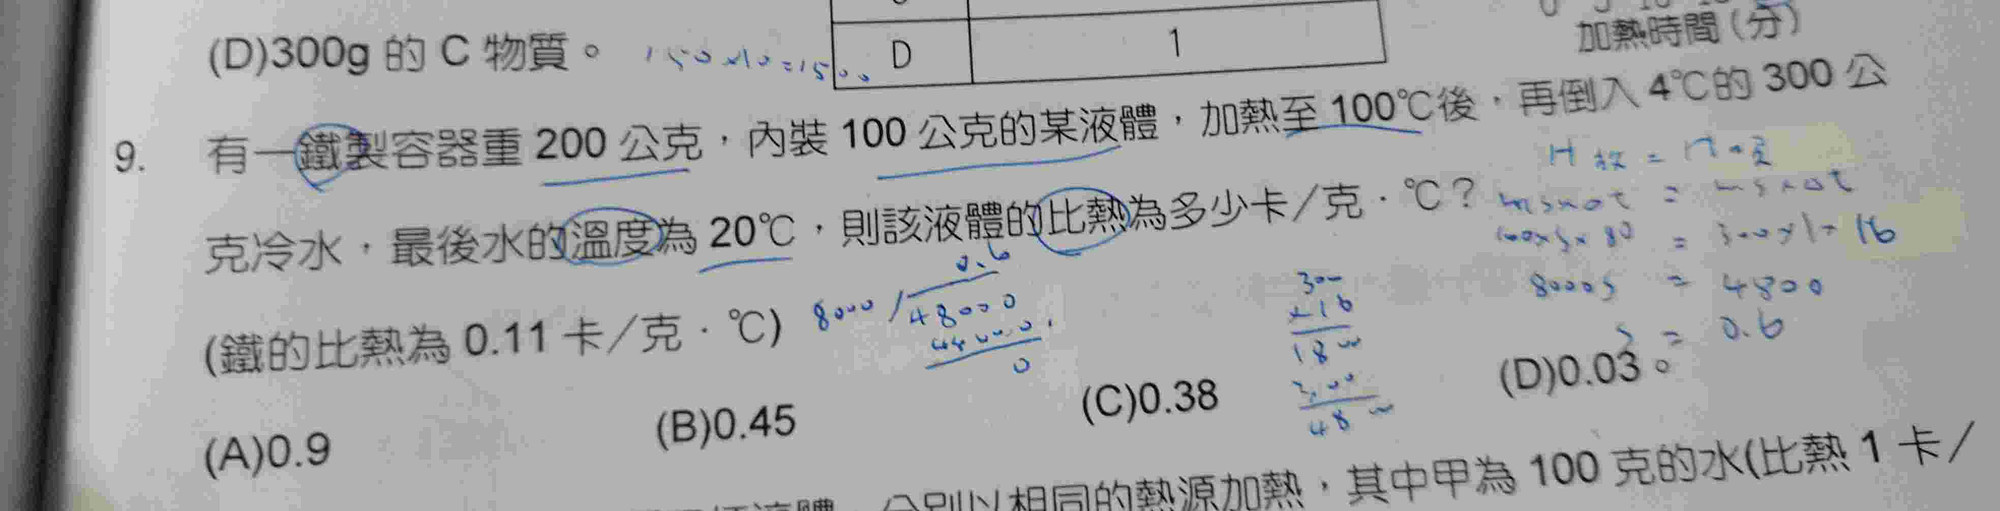 (D)300g 的 C 物質。 150×10=1500
D 1
加熱時間(分)
9. 有一鐵製容器重 200 公克，內裝 100 公克的某液體，加熱至 100℃後，再倒入 4℃的 300 公
克冷水，最後水的溫度為 20℃，則該液體的比熱為多少卡／克．℃？
H放=
ms×Δt = ms×Δt
100×s×80 = 300×1×16
8000s = 4800
s = 0.6
(鐵的比熱為 0.11 卡／克．℃)
0.6
8000 48000
48000
0
300
×16
1800
300
4800
(A)0.9 (B)0.45 (C)0.38 (D)0.03。
分別以相同的熱源加熱，其中甲為 100 克的水(比熱 1 卡／